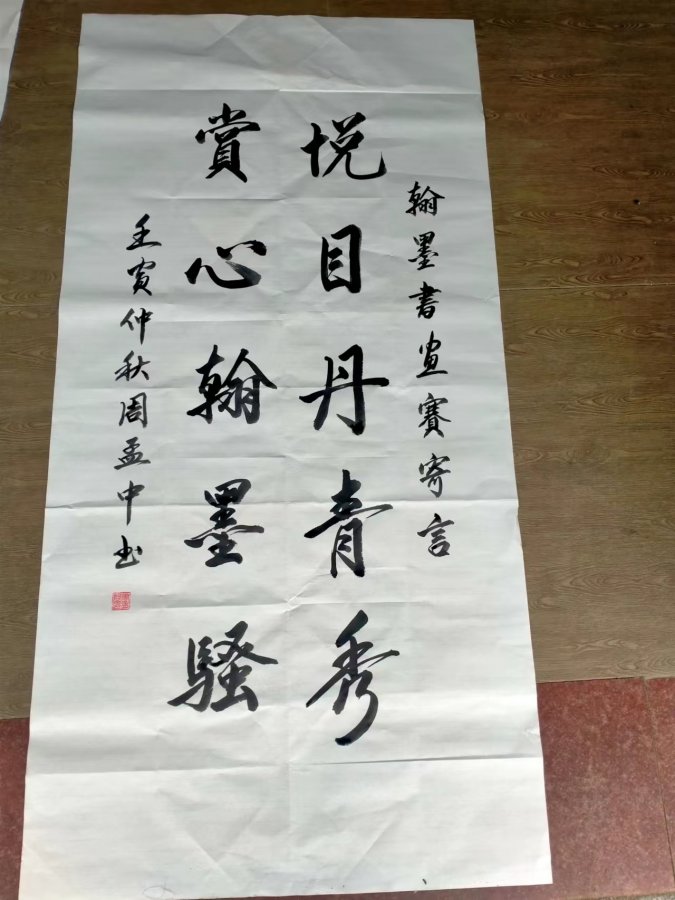 翰墨書畫賽寄言
悦目丹青秀
賞心翰墨騷
壬寅仲秋周孟中书